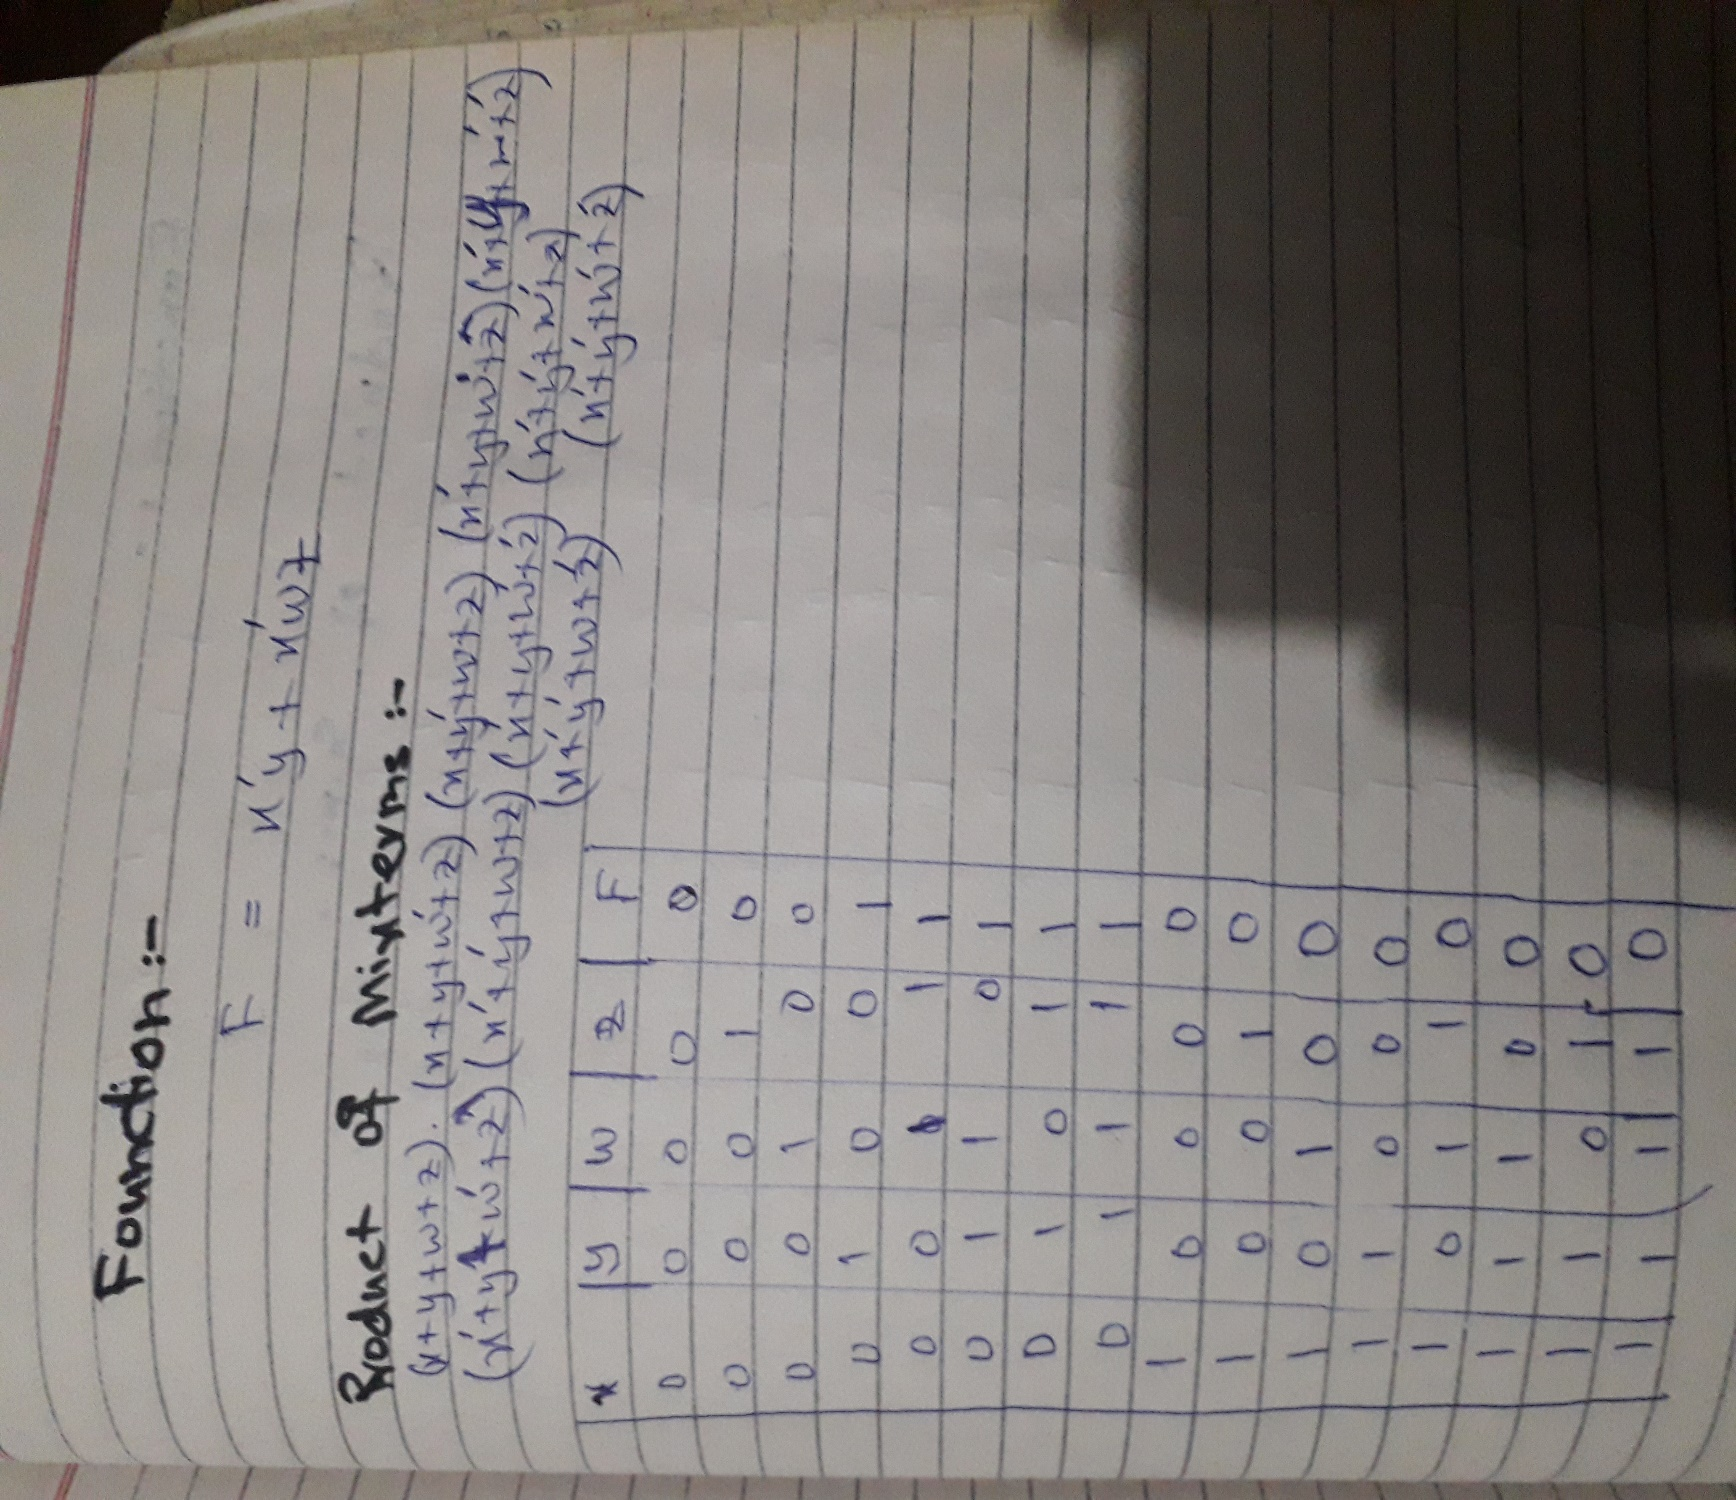 Founction:-
F = x'y + x'wz
Product of Mixterms:-
(x+y+w+z). (x+y+w'+z) (x+y'+w+z) (x'+y+w+z') (x'+y+w'+z)
(x'+y+w'+z') (x'+y'+w+z) (x'+y+w'+z') (x'+y'+w'+z)
(x'+y'+w+z') (x'+y'+w'+z')
x y w z F
0 0 0 0 0
0 0 0 1 0
0 0 1 0 0
0 1 0 0 1
0 0 1 1 1
0 1 1 0 1
0 1 0 1 1
0 1 1 1 1
1 0 0 0 0
1 0 0 1 0
1 0 1 0 0
1 1 0 0 0
1 0 1 1 0
1 1 1 0 0
1 1 0 1 0
1 1 1 1 0